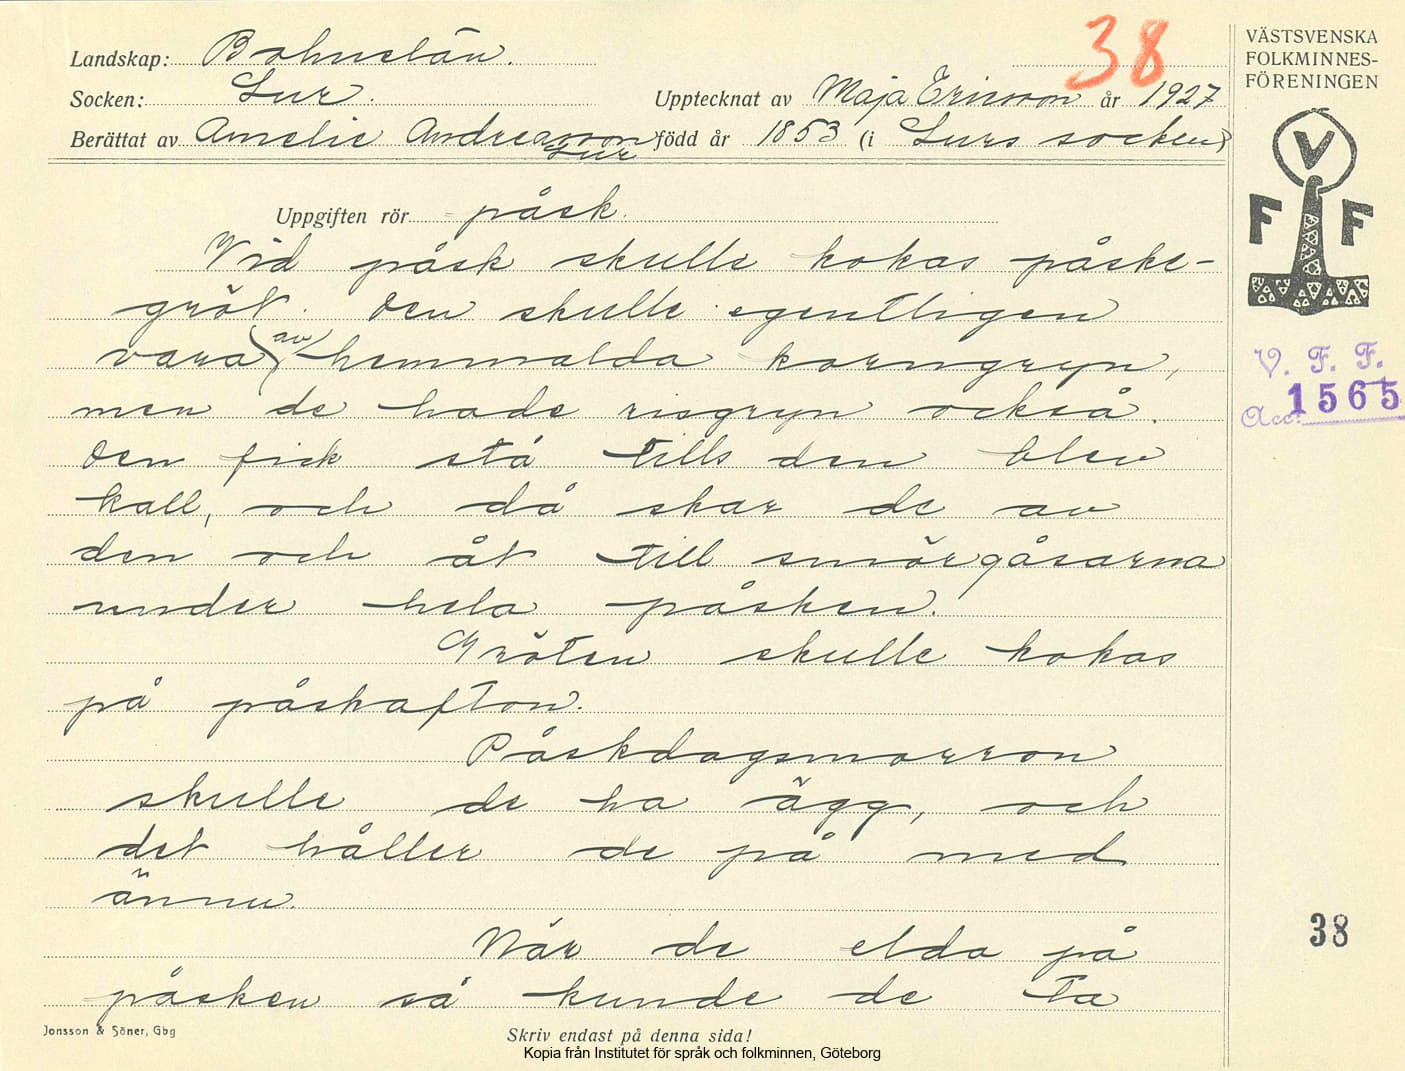 38
VÄSTSVENSKA
FOLKMINNES-
FÖRENINGEN
V
F F
V. F. F.
Acc: 1565
Landskap: Bohuslän.
Socken: Lur. Upptecknat av Maja Ericsson år 1927
Berättat av Amelie Andreasson född år 1853 (i Lurs socken)
Lur
Uppgiften rör påsk.
Vid påsk skulle kokas påske-
gröt. Den skulle egentligen
vara av hemmalda korngryn,
men de hade risgryn också.
Den fick stå tills den blev
kall, och då skar de av
den och åt till smörgåsarna
under hela påsken.
Gröten skulle kokas
på påskafton.
Påskdagsmorron
skulle de ha ägg, och
det håller de på med
ännu.
När de elda på
påsken så kunde de ta
38
Jonsson & Söner, Gbg
Skriv endast på denna sida!
Kopia från Institutet för språk och folkminnen, Göteborg